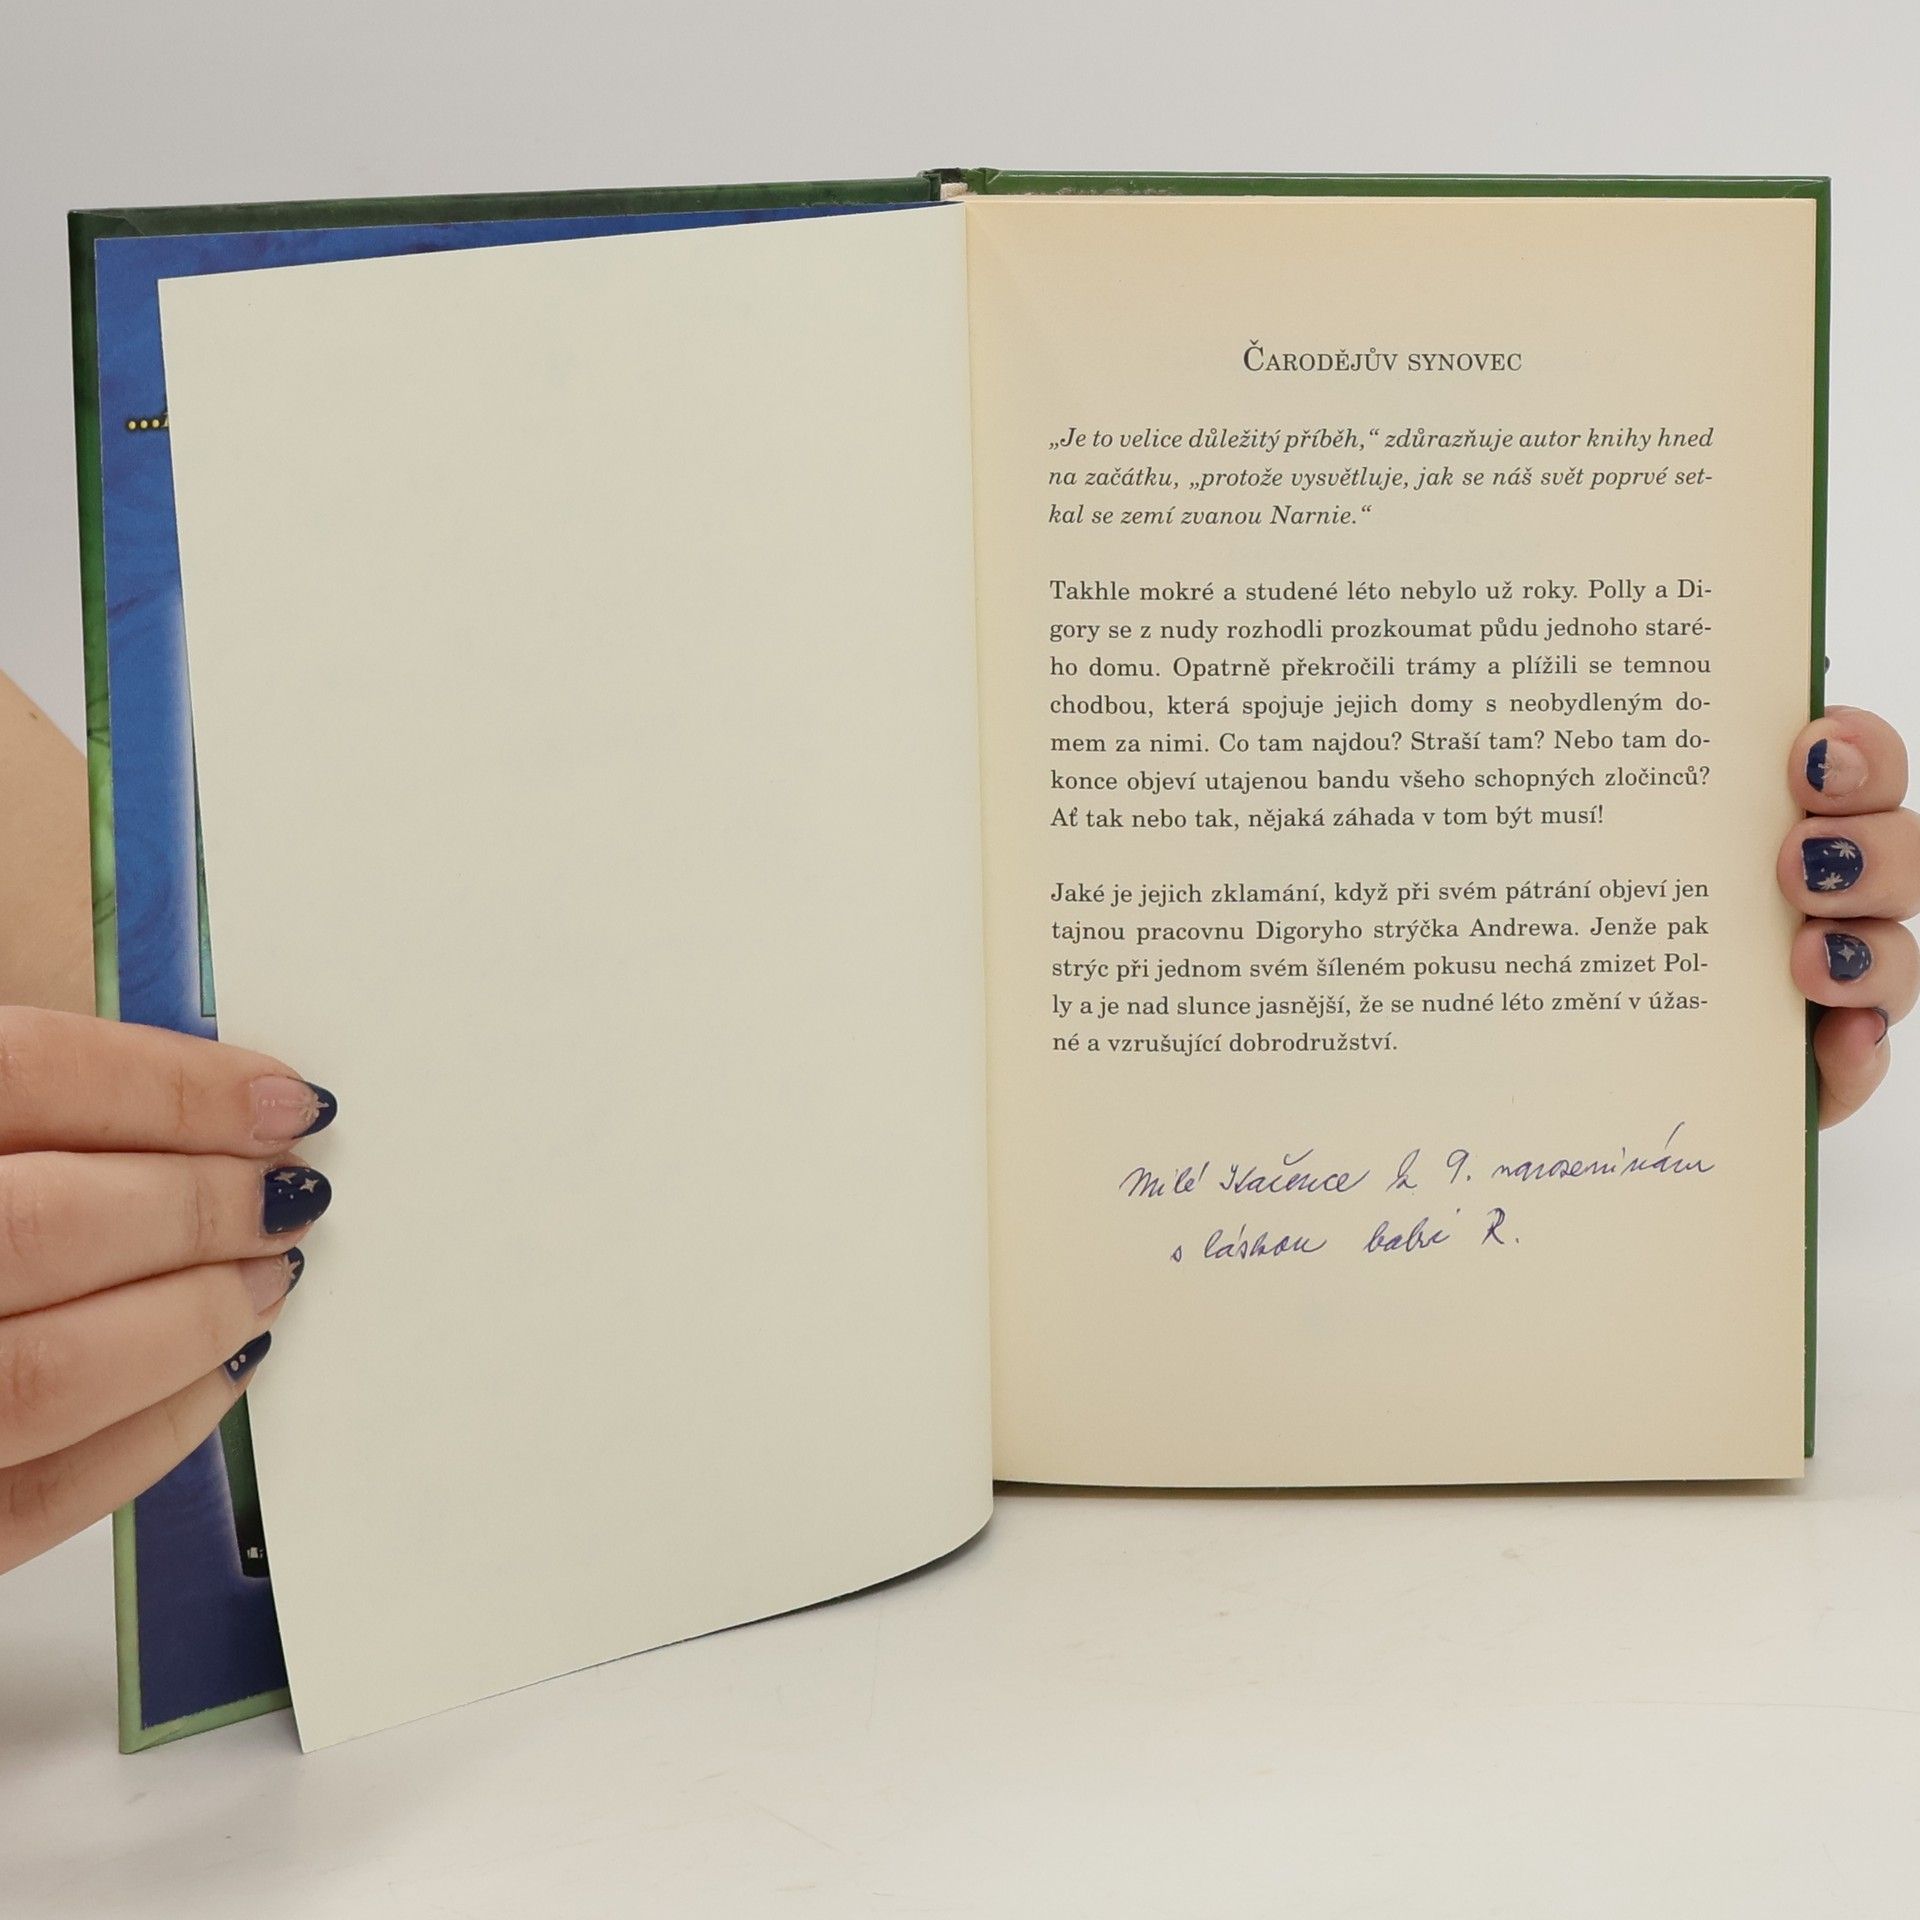 Čarodějův synovec
„Je to velice důležitý příběh,“ zdůrazňuje autor knihy hned
na začátku, „protože vysvětluje, jak se náš svět poprvé set-
kal se zemí zvanou Narnie.“
Takhle mokré a studené léto nebylo už roky. Polly a Di-
gory se z nudy rozhodli prozkoumat půdu jednoho staré-
ho domu. Opatrně překročili trámy a plížili se temnou
chodbou, která spojuje jejich domy s neobydleným do-
mem za nimi. Co tam najdou? Straší tam? Nebo tam do-
konce objeví utajenou bandu všeho schopných zločinců?
Ať tak nebo tak, nějaká záhada v tom být musí!
Jaké je jejich zklamání, když při svém pátrání objeví jen
tajnou pracovnu Digoryho strýčka Andrewa. Jenže pak
strýc při jednom svém šíleném pokusu nechá zmizet Pol-
ly a je nad slunce jasnější, že se nudné léto změní v úžas-
né a vzrušující dobrodružství.
Milé Kačence k 9. narozeninám
s láskou babi R.